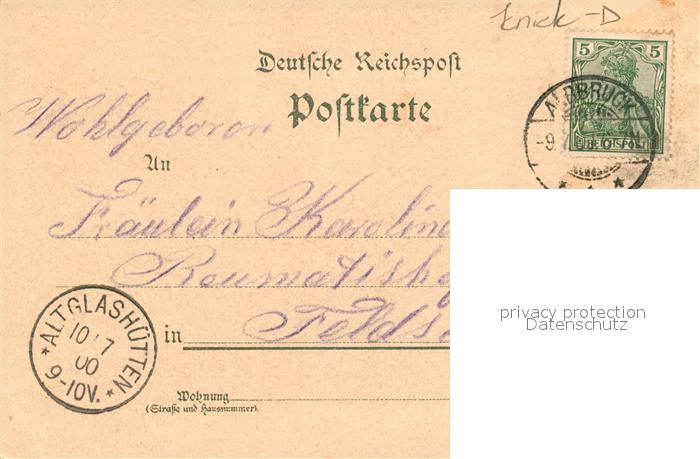 Knick-D
5 5
Deutsche Reichspost
Postkarte
ALBBRUCK
-9.
REICHSPOST
Wohlgeboren
An
Fräulein Karolin
in Felds
ALTGLASHÜTTEN
10 7
00
9-10V.
Wohnung
(Straße und Hausnummer).
privacy protection
Datenschutz